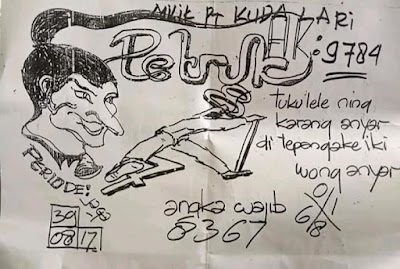 KUDA LARI
Petruk AK: 9784
tukulele ning
karang anyar
di tepengake iki
wong anyar
PERIODE:
30
08 17
angka wajib
8367
0
6 1
8